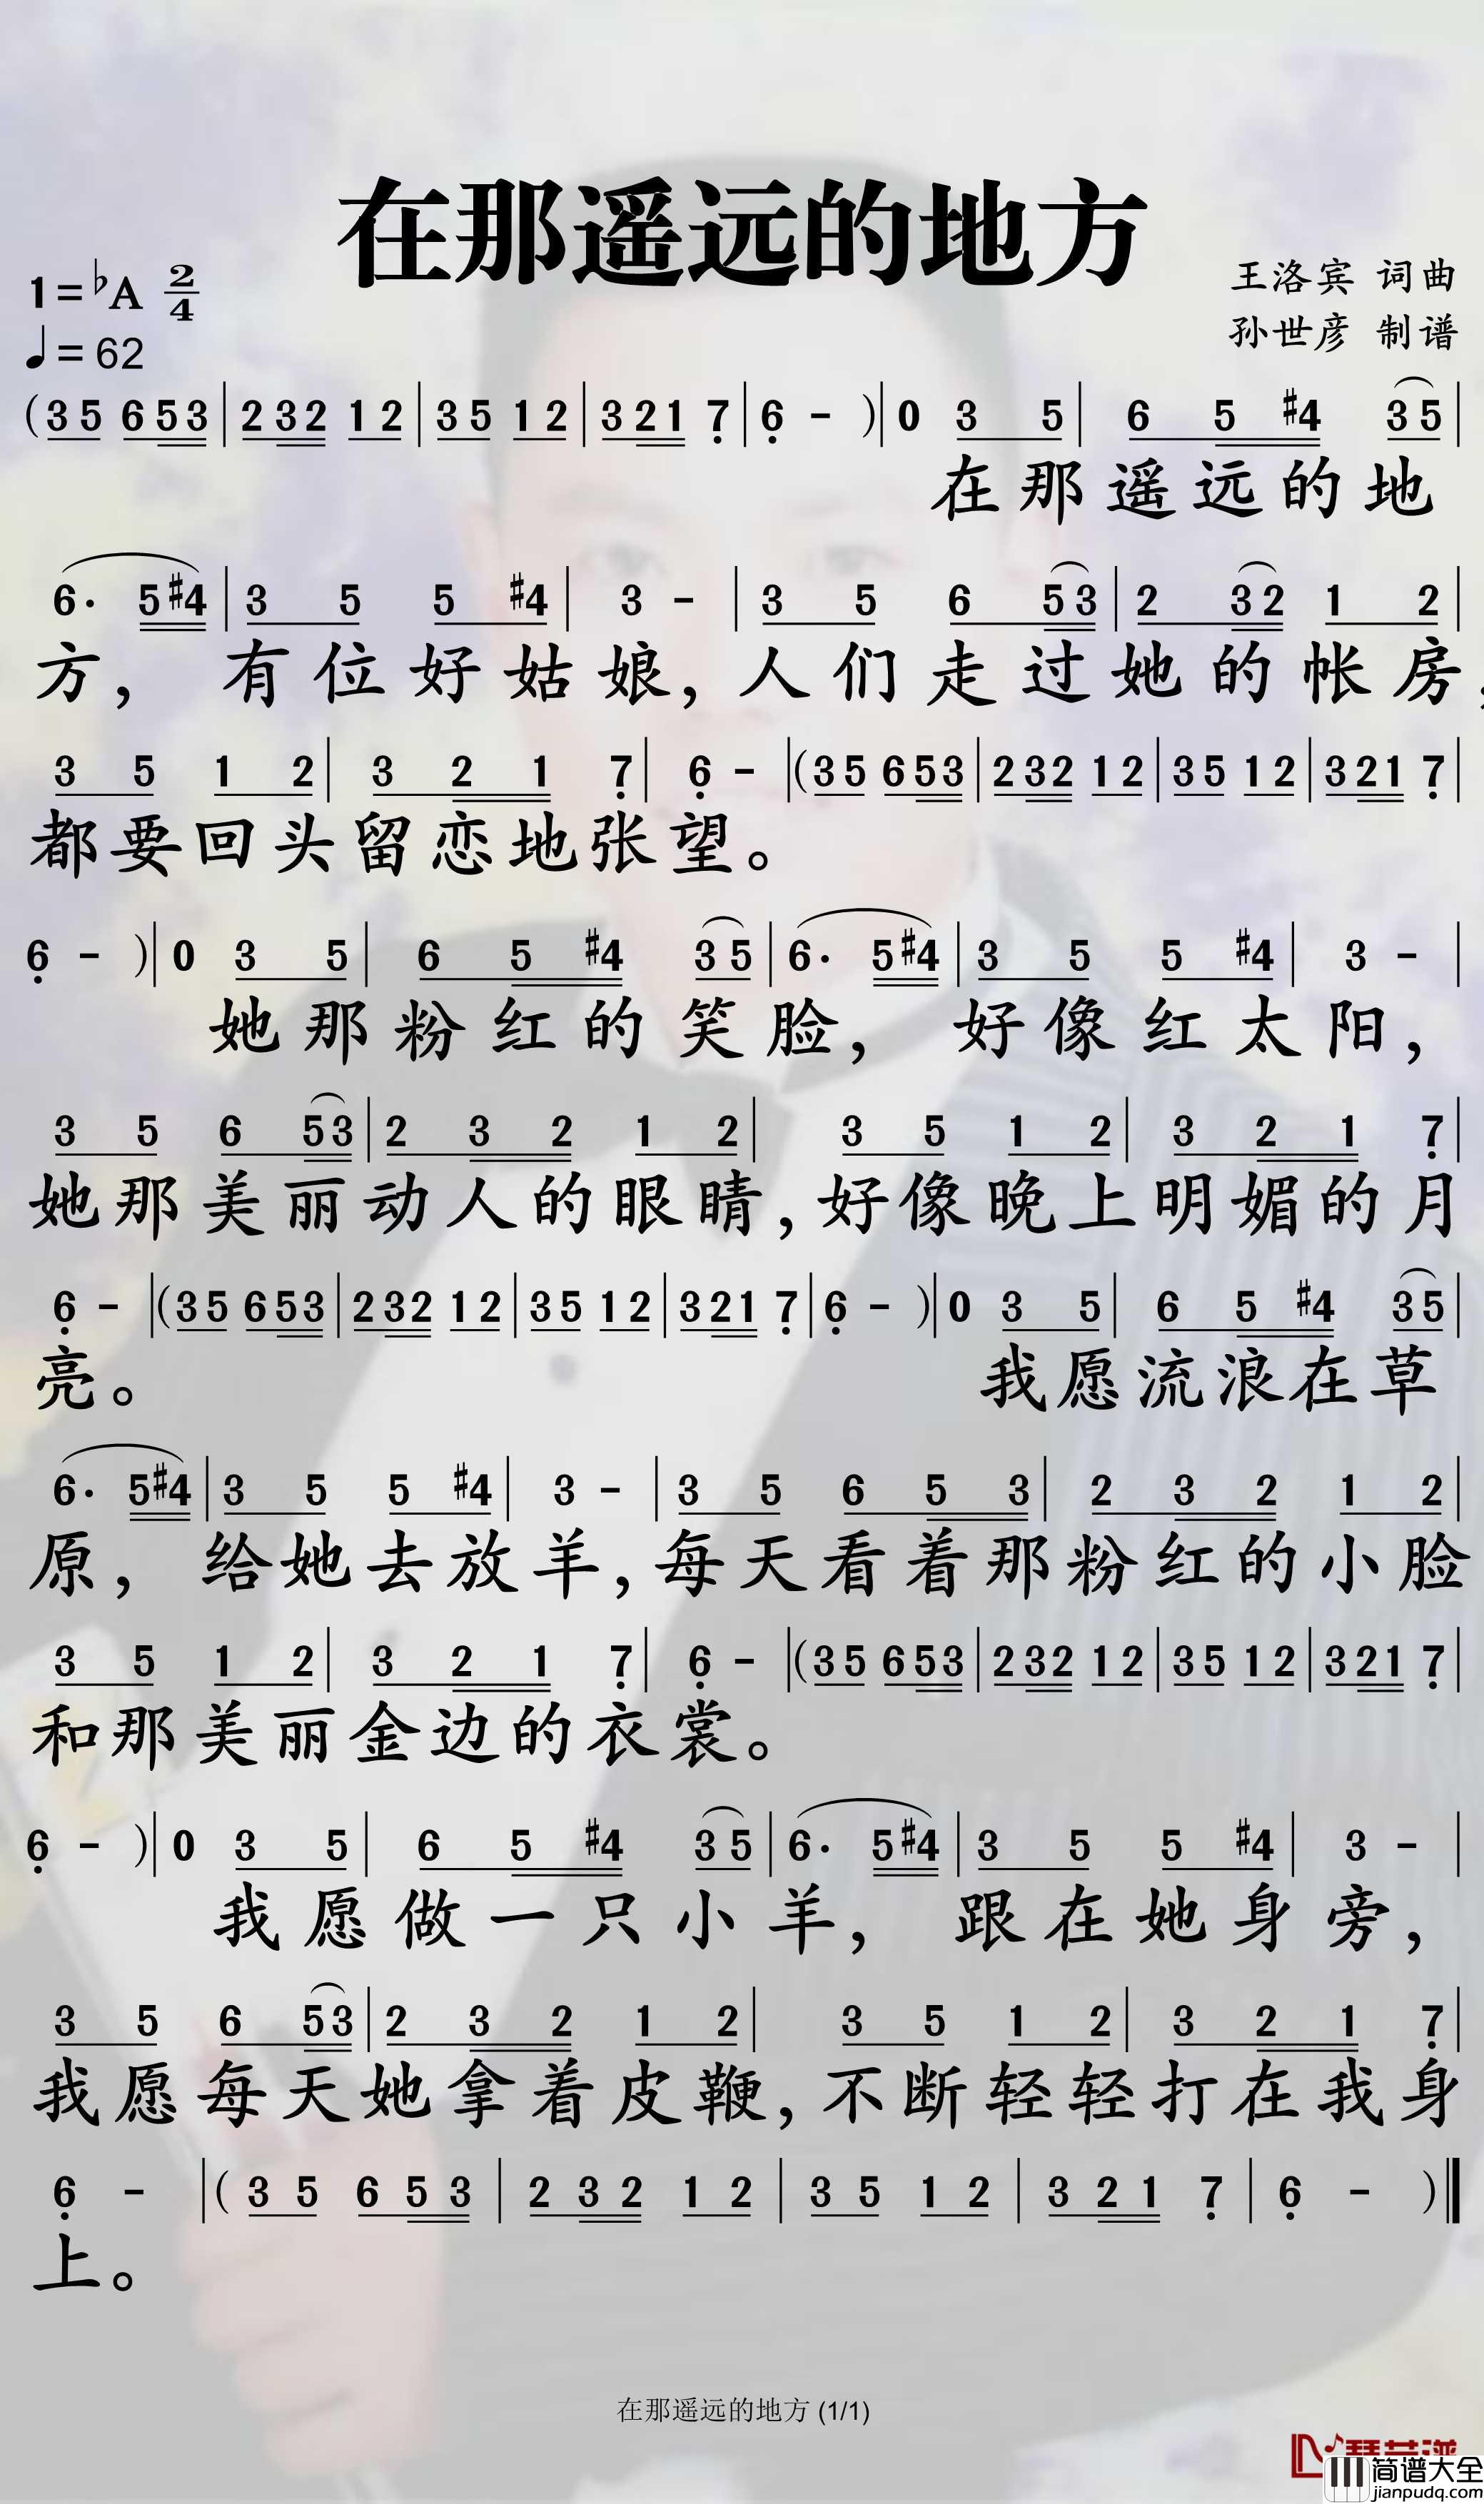 在那遥远的地方
1=♭A 2/4
王洛宾 词曲
♩=62
孙世彦 制谱
(3 5 6 5 3 | 2 3 2 1 2 | 3 5 1 2 | 3 2 1 7̣ | 6̣ - ) | 0 3 5 | 6 5 #4 3 5 |
在那遥远的地
6· 5 #4 | 3 5 5 #4 | 3 - | 3 5 6 5 3 | 2 3 2 1 2 |
方, 有位好姑娘, 人们走过她的帐房,
3 5 1 2 | 3 2 1 7̣ | 6̣ - | (3 5 6 5 3 | 2 3 2 1 2 | 3 5 1 2 | 3 2 1 7̣ |
都要回头留恋地张望。
6̣ - ) | 0 3 5 | 6 5 #4 3 5 | 6· 5 #4 | 3 5 5 #4 | 3 - |
她那粉红的笑脸, 好像红太阳,
3 5 6 5 3 | 2 3 2 1 2 | 3 5 1 2 | 3 2 1 7̣ |
她那美丽动人的眼睛, 好像晚上明媚的月
6̣ - | (3 5 6 5 3 | 2 3 2 1 2 | 3 5 1 2 | 3 2 1 7̣ | 6̣ - ) | 0 3 5 | 6 5 #4 3 5 |
亮。 我愿流浪在草
6· 5 #4 | 3 5 5 #4 | 3 - | 3 5 6 5 3 | 2 3 2 1 2 |
原, 给她去放羊, 每天看着那粉红的小脸
3 5 1 2 | 3 2 1 7̣ | 6̣ - | (3 5 6 5 3 | 2 3 2 1 2 | 3 5 1 2 | 3 2 1 7̣ |
和那美丽金边的衣裳。
6̣ - ) | 0 3 5 | 6 5 #4 3 5 | 6· 5 #4 | 3 5 5 #4 | 3 - |
我愿做一只小羊, 跟在她身旁,
3 5 6 5 3 | 2 3 2 1 2 | 3 5 1 2 | 3 2 1 7̣ |
我愿每天她拿着皮鞭, 不断轻轻打在我身
6̣ - | (3 5 6 5 3 | 2 3 2 1 2 | 3 5 1 2 | 3 2 1 7̣ | 6̣ - ) ‖
上。
在那遥远的地方 (1/1)
简谱大全
jianpudq.com